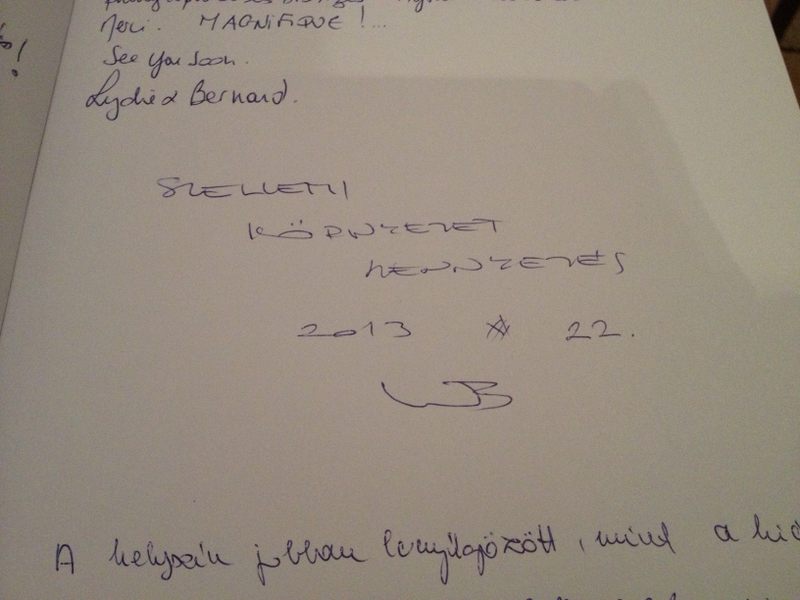 Merci. MAGNIFIQUE !...
See you soon.
Lydie & Bernard.
SZELLEMI
KÖRNYEZET
SZENNYEZÉS
2013 X 22.
A helyszín jobban lenyűgözött, mint a